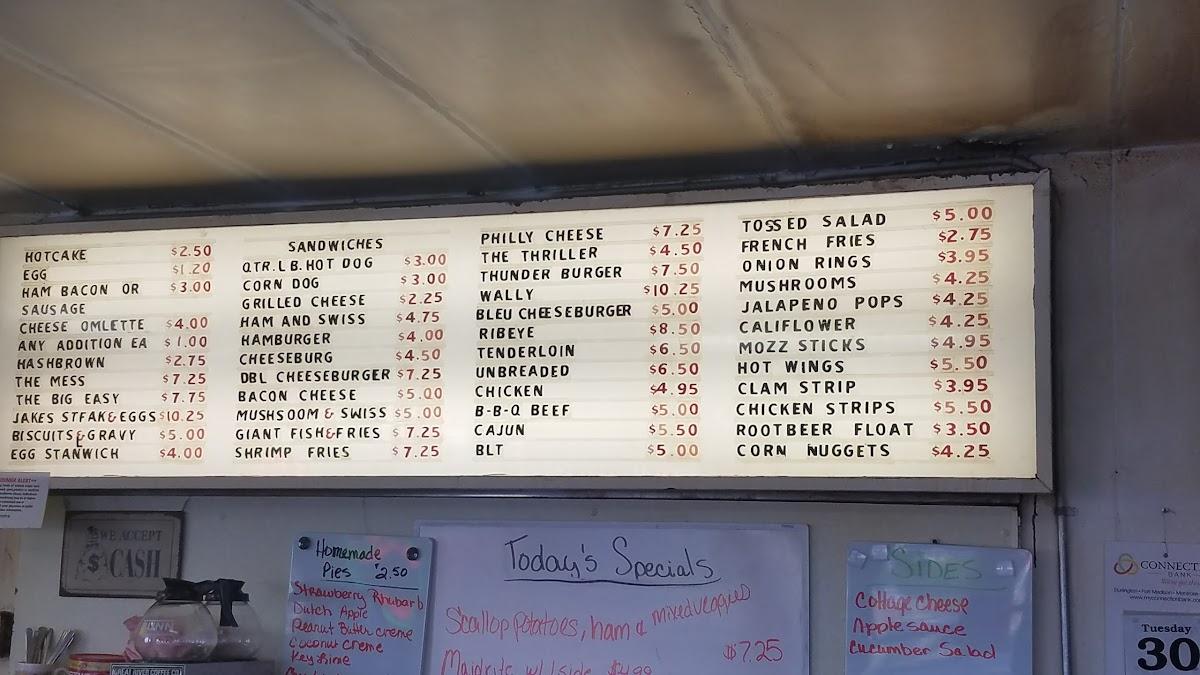 HOTCAKE $2.50
EGG $1.20
HAM BACON OR $3.00
SAUSAGE
CHEESE OMLETTE $4.00
ANY ADDITION EA $1.00
HASHBROWN $2.75
THE MESS $7.25
THE BIG EASY $7.75
JAKES STFAK&EGGS $10.25
BISCUITS&GRAVY $5.00
EGG STANWICH $4.00
SANDWICHES
QTR.LB.HOT DOG $3.00
CORN DOG $3.00
GRILLED CHEESE $2.25
HAM AND SWISS $4.75
HAMBURGER $4.00
CHEESEBURG $4.50
DBL CHEESEBURGER $7.25
BACON CHEESE $5.00
MUSHSOOM & SWISS $5.00
GIANT FISH&FRIES $7.25
SHRIMP FRIES $7.25
PHILLY CHEESE $7.25
THE THRILLER $4.50
THUNDER BURGER $7.50
WALLY $10.25
BLEU CHEESEBURGER $5.00
RIBEYE $8.50
TENDERLOIN $6.50
UNBREADED $6.50
CHICKEN $4.95
B-B-Q BEEF $5.00
CAJUN $5.50
BLT $5.00
TOSSED SALAD $5.00
FRENCH FRIES $2.75
ONION RINGS $3.95
MUSHROOMS $4.25
JALAPENO POPS $4.25
CALIFLOWER $4.25
MOZZ STICKS $4.95
HOT WINGS $5.50
CLAM STRIP $3.95
CHICKEN STRIPS $5.50
ROOTBEER FLOAT $3.50
CORN NUGGETS $4.25
WE ACCEPT
$ CASH
Homemade
Pies $2.50
Strawberry Rhubarb
Dutch Apple
Peanut Butter creme
Coconut creme
Key lime
Today's Specials
Scallop potatoes, ham & mixed veggies
$7.25
Maidrite w/ 1 side $4.99
SIDES
Cottage cheese
Applesauce
Cucumber Salad
CONNECT
BANK
www.myconnectionbank.com
Tuesday
30